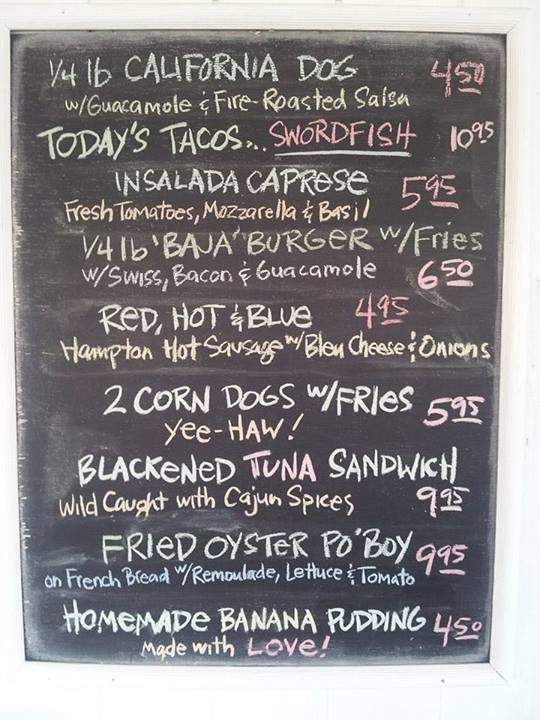 1/4 lb CALIFORNIA DOG 4.50
w/Guacamole & Fire-Roasted Salsa
TODAY'S TACOS... SWORDFISH 10.95
INSALADA CAPRESE 5.95
Fresh Tomatoes, Mozzarella & Basil
1/4 lb 'BAJA' BURGER w/Fries
w/Swiss, Bacon & Guacamole 6.50
RED, HOT & BLUE 4.95
Hampton Hot Sausage w/Bleu Cheese & Onions
2 CORN DOGS w/FRIES 5.95
Yee-HAW!
BLACKENED TUNA SANDWICH
Wild Caught with Cajun Spices 9.95
FRIED OYSTER PO'BOY 9.95
on French Bread w/Remoulade, Lettuce & Tomato
HOMEMADE BANANA PUDDING 4.50
Made with LOVE!